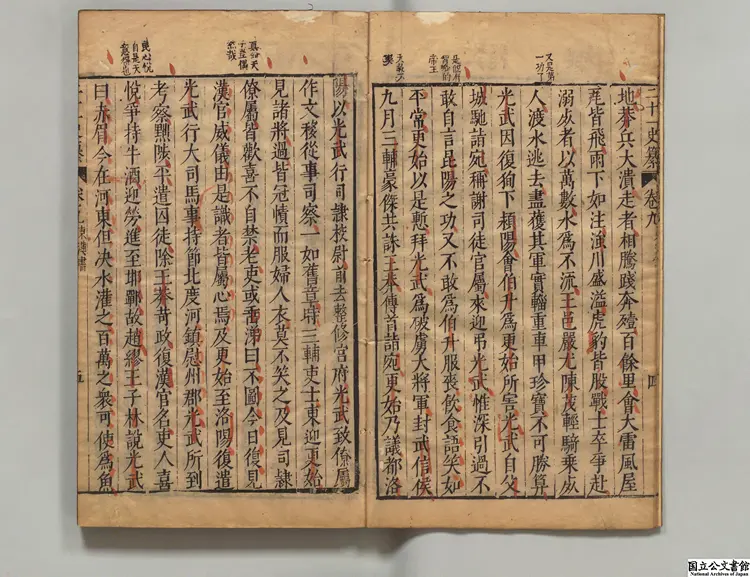 二十一史纂 卷九 四
又是第
一功了
帝王
地莽兵大潰走者相騰踐奔殪百餘里會大雷風屋
瓦皆飛雨下如注滍川盛溢虎豹皆股戰士卒爭赴
溺死者以萬數水爲不流王邑嚴尤陳茂輕騎乘死
人渡水逃去盡獲其軍實輜重車甲珍寶不可勝算
光武因復狥下潁陽會伯升爲更始所害光武自父
城馳詣宛稱謝司徒官屬來迎弔光武惟深引過不
敢自言昆陽之功又不敢爲伯升服喪飲食語笑如
平常更始以是慙拜光武爲破虜大將軍封武信侯
九月三輔豪傑共誅王莽傳首詣宛更始乃議都洛
民心悅
自是天
陽以光武行司隷校尉前去整修宮府光武致僚屬
作文移從事司察一如舊章時三輔吏士東迎更始
見諸將過皆冠幘而服婦人衣莫不笑之及見司隷
僚屬皆歡喜不自禁老吏或垂涕曰不圖今日復見
漢官威儀由是識者皆屬心焉及更始至洛陽復遣
光武行大司馬事持節北度河鎮慰州郡光武所到
考察黜陟平遣囚徒除王莽苛政復漢官名吏人喜
悅爭持牛酒迎勞進至邯鄲故趙繆王子林說光武
曰赤眉今在河東但決水灌之百萬之衆可使爲魚
五
国立公文書館
National Archives of Japan